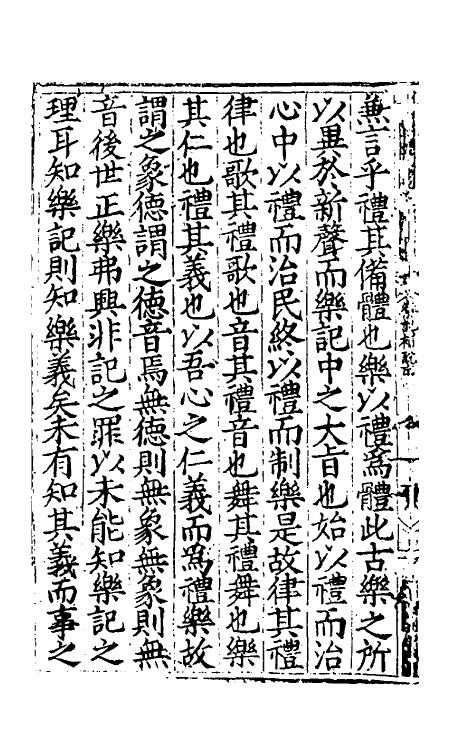 兼言乎禮其備體也樂以禮爲體此古樂之所
以異於新聲而樂記中之大旨也始以禮而治
心中以禮而治民終以禮而制樂是故律其禮
律也歌其禮歌也音其禮音也舞其禮舞也樂
其仁也禮其義也以吾心之仁義而爲禮樂故
謂之象德謂之德音焉無德則無象無象則無
音後世正樂弗興非記之罪以未能知樂記之
理耳知樂記則知樂義矣未有知其義而事之